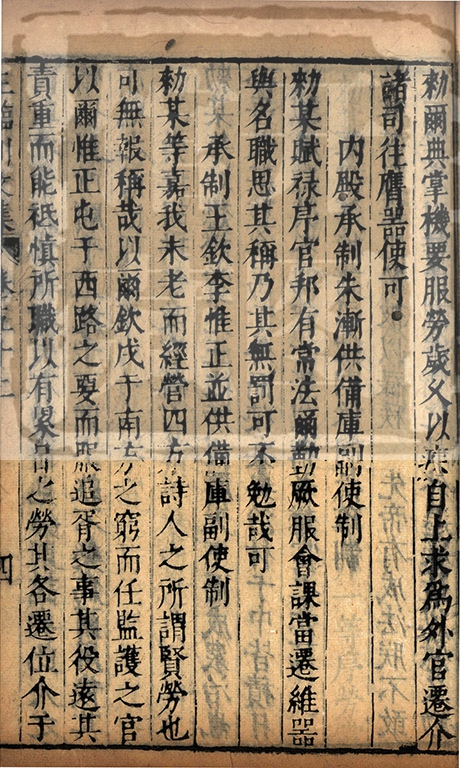 勑爾典掌機要服勞歲久以疾自上求爲外官遷介
諸司往膺器使可
内殿承制朱漸供備庫副使制
勑某賦禄序官邦有常法爾勤厥服會課當遷維器
與名職思其稱乃其無罰可不勉哉可
承制王欽李惟正並供備庫副使制
勑某等嘉我未老而經營四方詩人之所謂賢勞也
可無報稱哉以爾欽戍于南方之窮而任監護之官
以爾惟正屯于西路之要而服追胥之事其役逺其
責重而能祗慎所職以有累日之勞其各遷位介于
王臨川文集 卷五十二 四